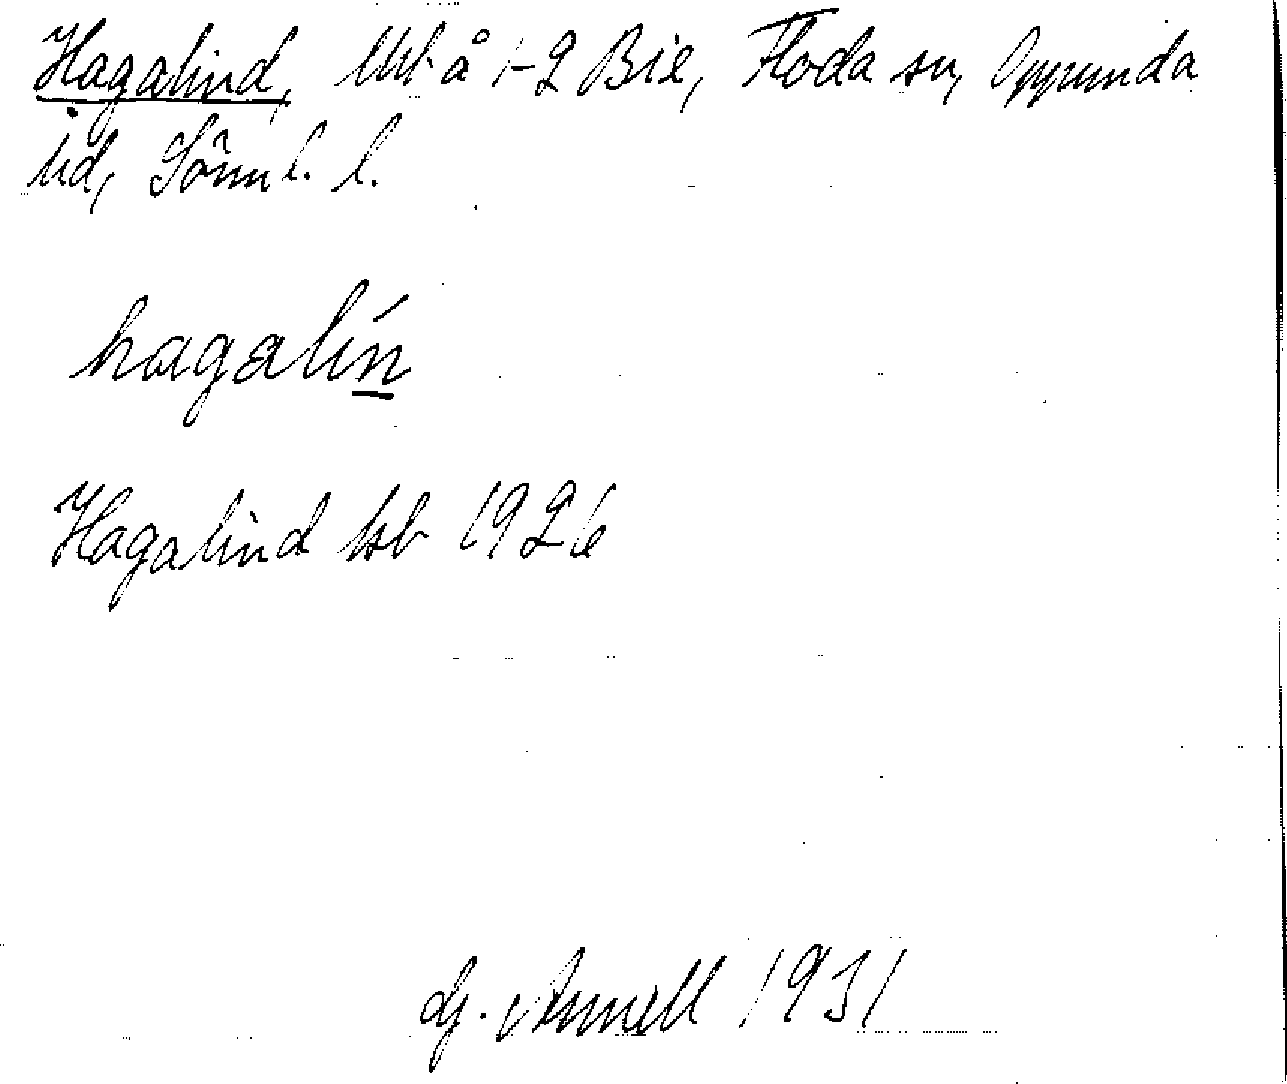 Hagalind, Utl å 1-2 Bie, Floda sn, Oppunda
hd, Sörml. l.
hagalín
Hagalind ksb 1926
G. Annell 1931